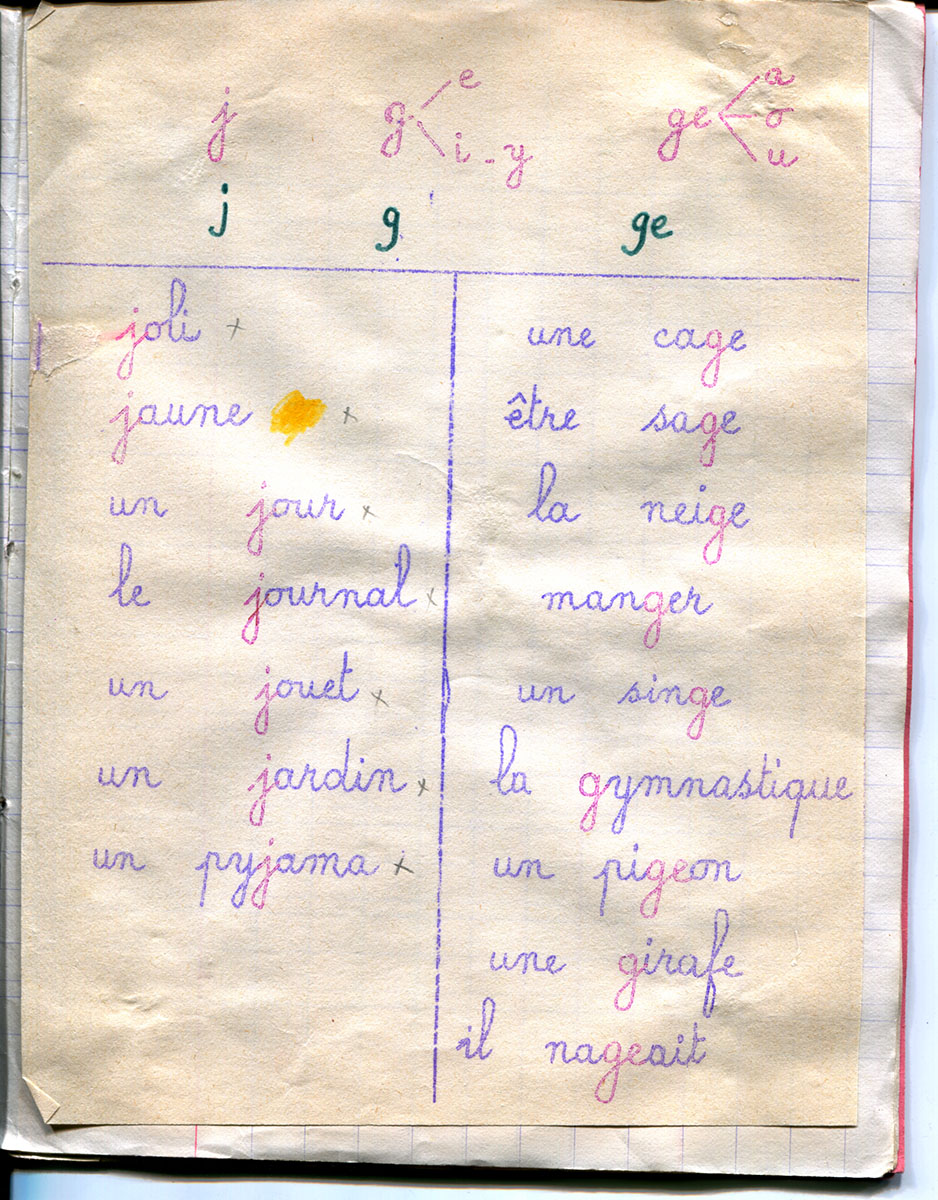 j g e ge a
i - y o
u
j g ge
joli
jaune
un jour
le journal
un jouet
un jardin
un pyjama
une cage
être sage
la neige
manger
un singe
la gymnastique
un pigeon
une girafe
il nageait